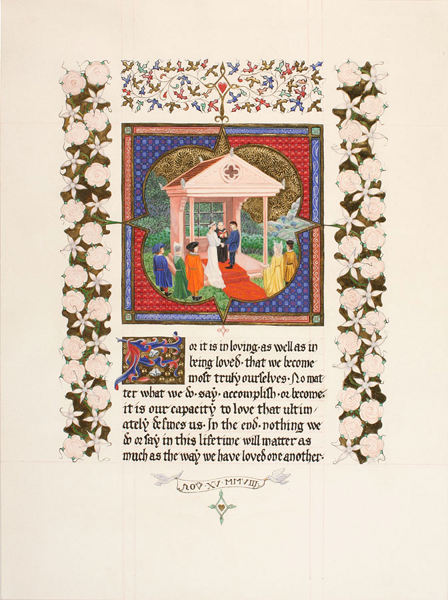 For it is in loving · as well as in
being loved · that we become
most truly ourselves · No mat
ter what we do · say · accomplish · or become,
it is our capacity to love that ultim/
ately defines us · In the end · nothing we
do or say in this lifetime will matter as
much as the way we have loved one another ·
NOV · XV · MMVIII ·